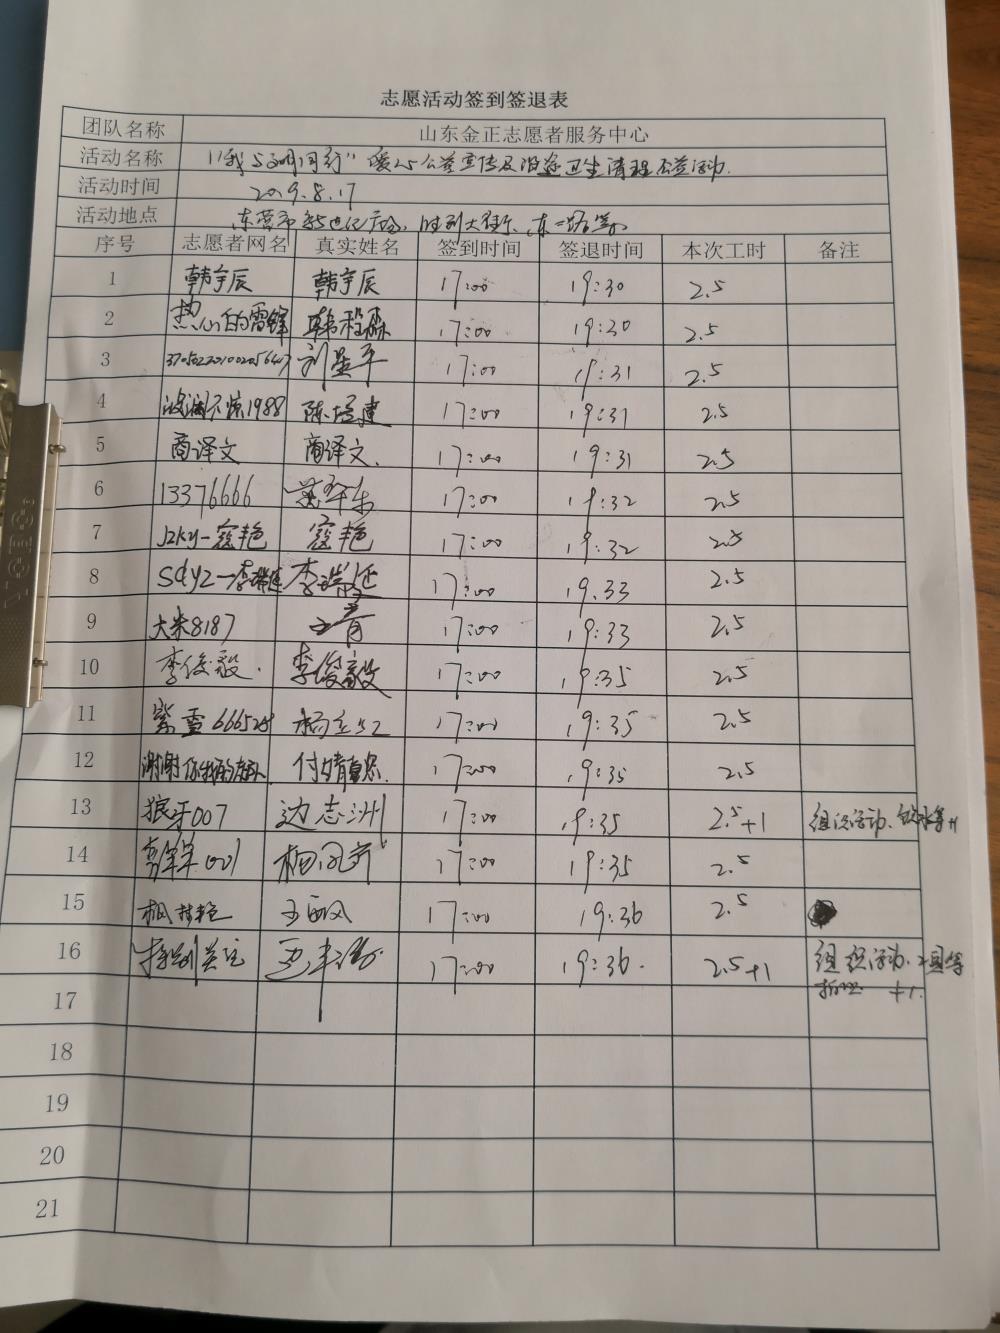 志愿活动签到签退表
团队名称 山东金正志愿者服务中心
活动名称 "我与文明同行"爱心公益宣传及沿途卫生清理公益活动
活动时间 2019.8.17
活动地点 东营市新世纪广场、胜利大街东、东二路等
序号 志愿者网名 真实姓名 签到时间 签退时间 本次工时 备注
1 韩宇辰 韩宇辰 17:00 19:30 2.5
2 热心的雷锋 韩程淼 17:00 19:30 2.5
3 刘星平 17:00 19:31 2.5
4 波澜不惊1988 陈培建 17:00 19:31 2.5
5 商译文 商译文. 17:00 19:31 2.5
6 13376666 17:00 19:32 2.5
7 jzky-寇艳 寇艳 17:00 19:32 2.5
8 sdyz-李瑞延 李瑞延 17:00 19.33 2.5
9 大米8187 17:00 19:33 2.5
10 李俊毅. 李俊毅 17:00 19:35 2.5
11 紫雪 17:00 19:35 2.5
12 谢谢你我的 付婧 17:00 19:35 2.5
13 狼牙007 边志洲 17:00 19:35 2.5+1 组织活动、
14 001 17:00 19:35 2.5
15 17:00 19:36 2.5
16 特别关注 17:00 19:36. 2.5+1 组织活动、
+1.
17
18
19
20
21